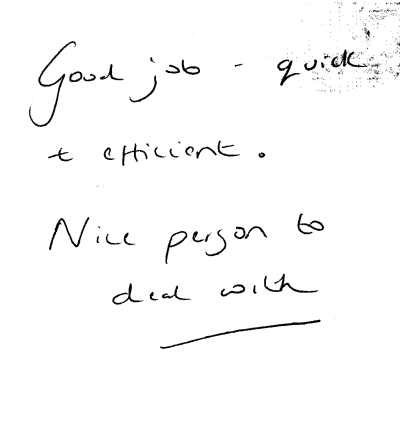 Good job - quick
+ efficient.
Nice person to
deal with